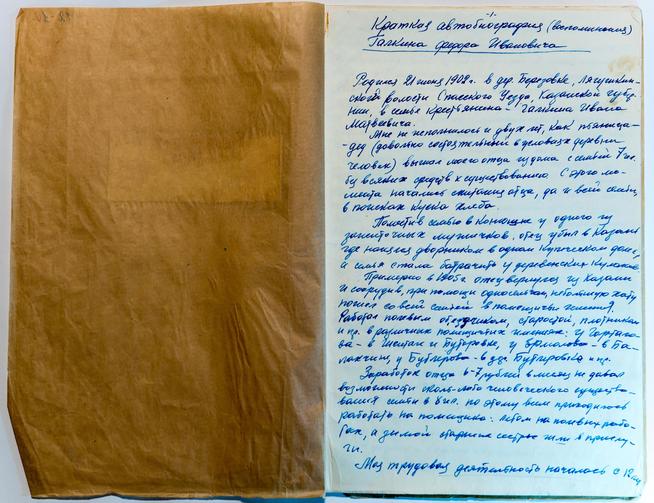 -1-
Краткая автобиография (воспоминания)
Галкина Федора Ивановича
Родился 21 июня 1902 г. в дер. Березовке, Лягушкин-
ской волости Спасского Уезда, Казанской губер-
нии, в семье крестьянина - Галкина Ивана
Матвеевича.
Мне не исполнилось и двух лет, как пьяница-
-дед (довольно состоятельный в деловах деревни
человек) выгнал моего отца из дома с семьей 7 чел.
без всяких средств к существованию. С этого мо-
мента начались скитания отца, да и всей семьи,
в поисках куска хлеба.
Поместив семью в конюшне у одного из
зажиточных мужичков, отец убыл в Казань
где нашелся дворником в одном купеческом доме,
а семья стала батрачить у деревенских кулаков.
Примерно в 1905 г. отец вернулся из Казани
и соорудив, при помощи односельчан, небольшую хату
пошел со всей семьей в помещичьи имения.
Работал полевым объездчиком, старостой, плотником
и пр. в различных помещичьих имениях: у
ва - в и Бутлеровке, у Ермолова - в Ба-
лахчине, у Бутлерова - в дер. Бутлеровка и пр.
Заработок отца 6-7 рублей в месяц не давал
возможности какого-либо человеческого существо-
вания семьи в 8 чел. по этому всем приходилось
работать на помещика: летом на полевых рабо-
тах, а зимой старшие сестры шли в прислу-
ги.
Моя трудовая деятельность началась с 12